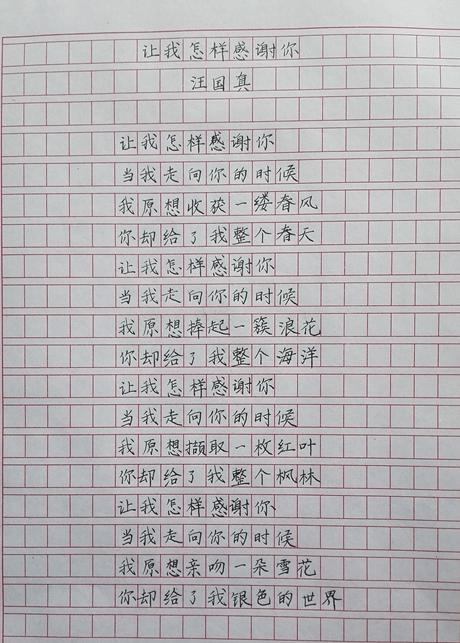 让我怎样感谢你
汪国真
让我怎样感谢你
当我走向你的时候
我原想收获一缕春风
你却给了我整个春天
让我怎样感谢你
当我走向你的时候
我原想捧起一簇浪花
你却给了我整个海洋
让我怎样感谢你
当我走向你的时候
我原想撷取一枚红叶
你却给了我整个枫林
让我怎样感谢你
当我走向你的时候
我原想亲吻一朵雪花
你却给了我银色的世界